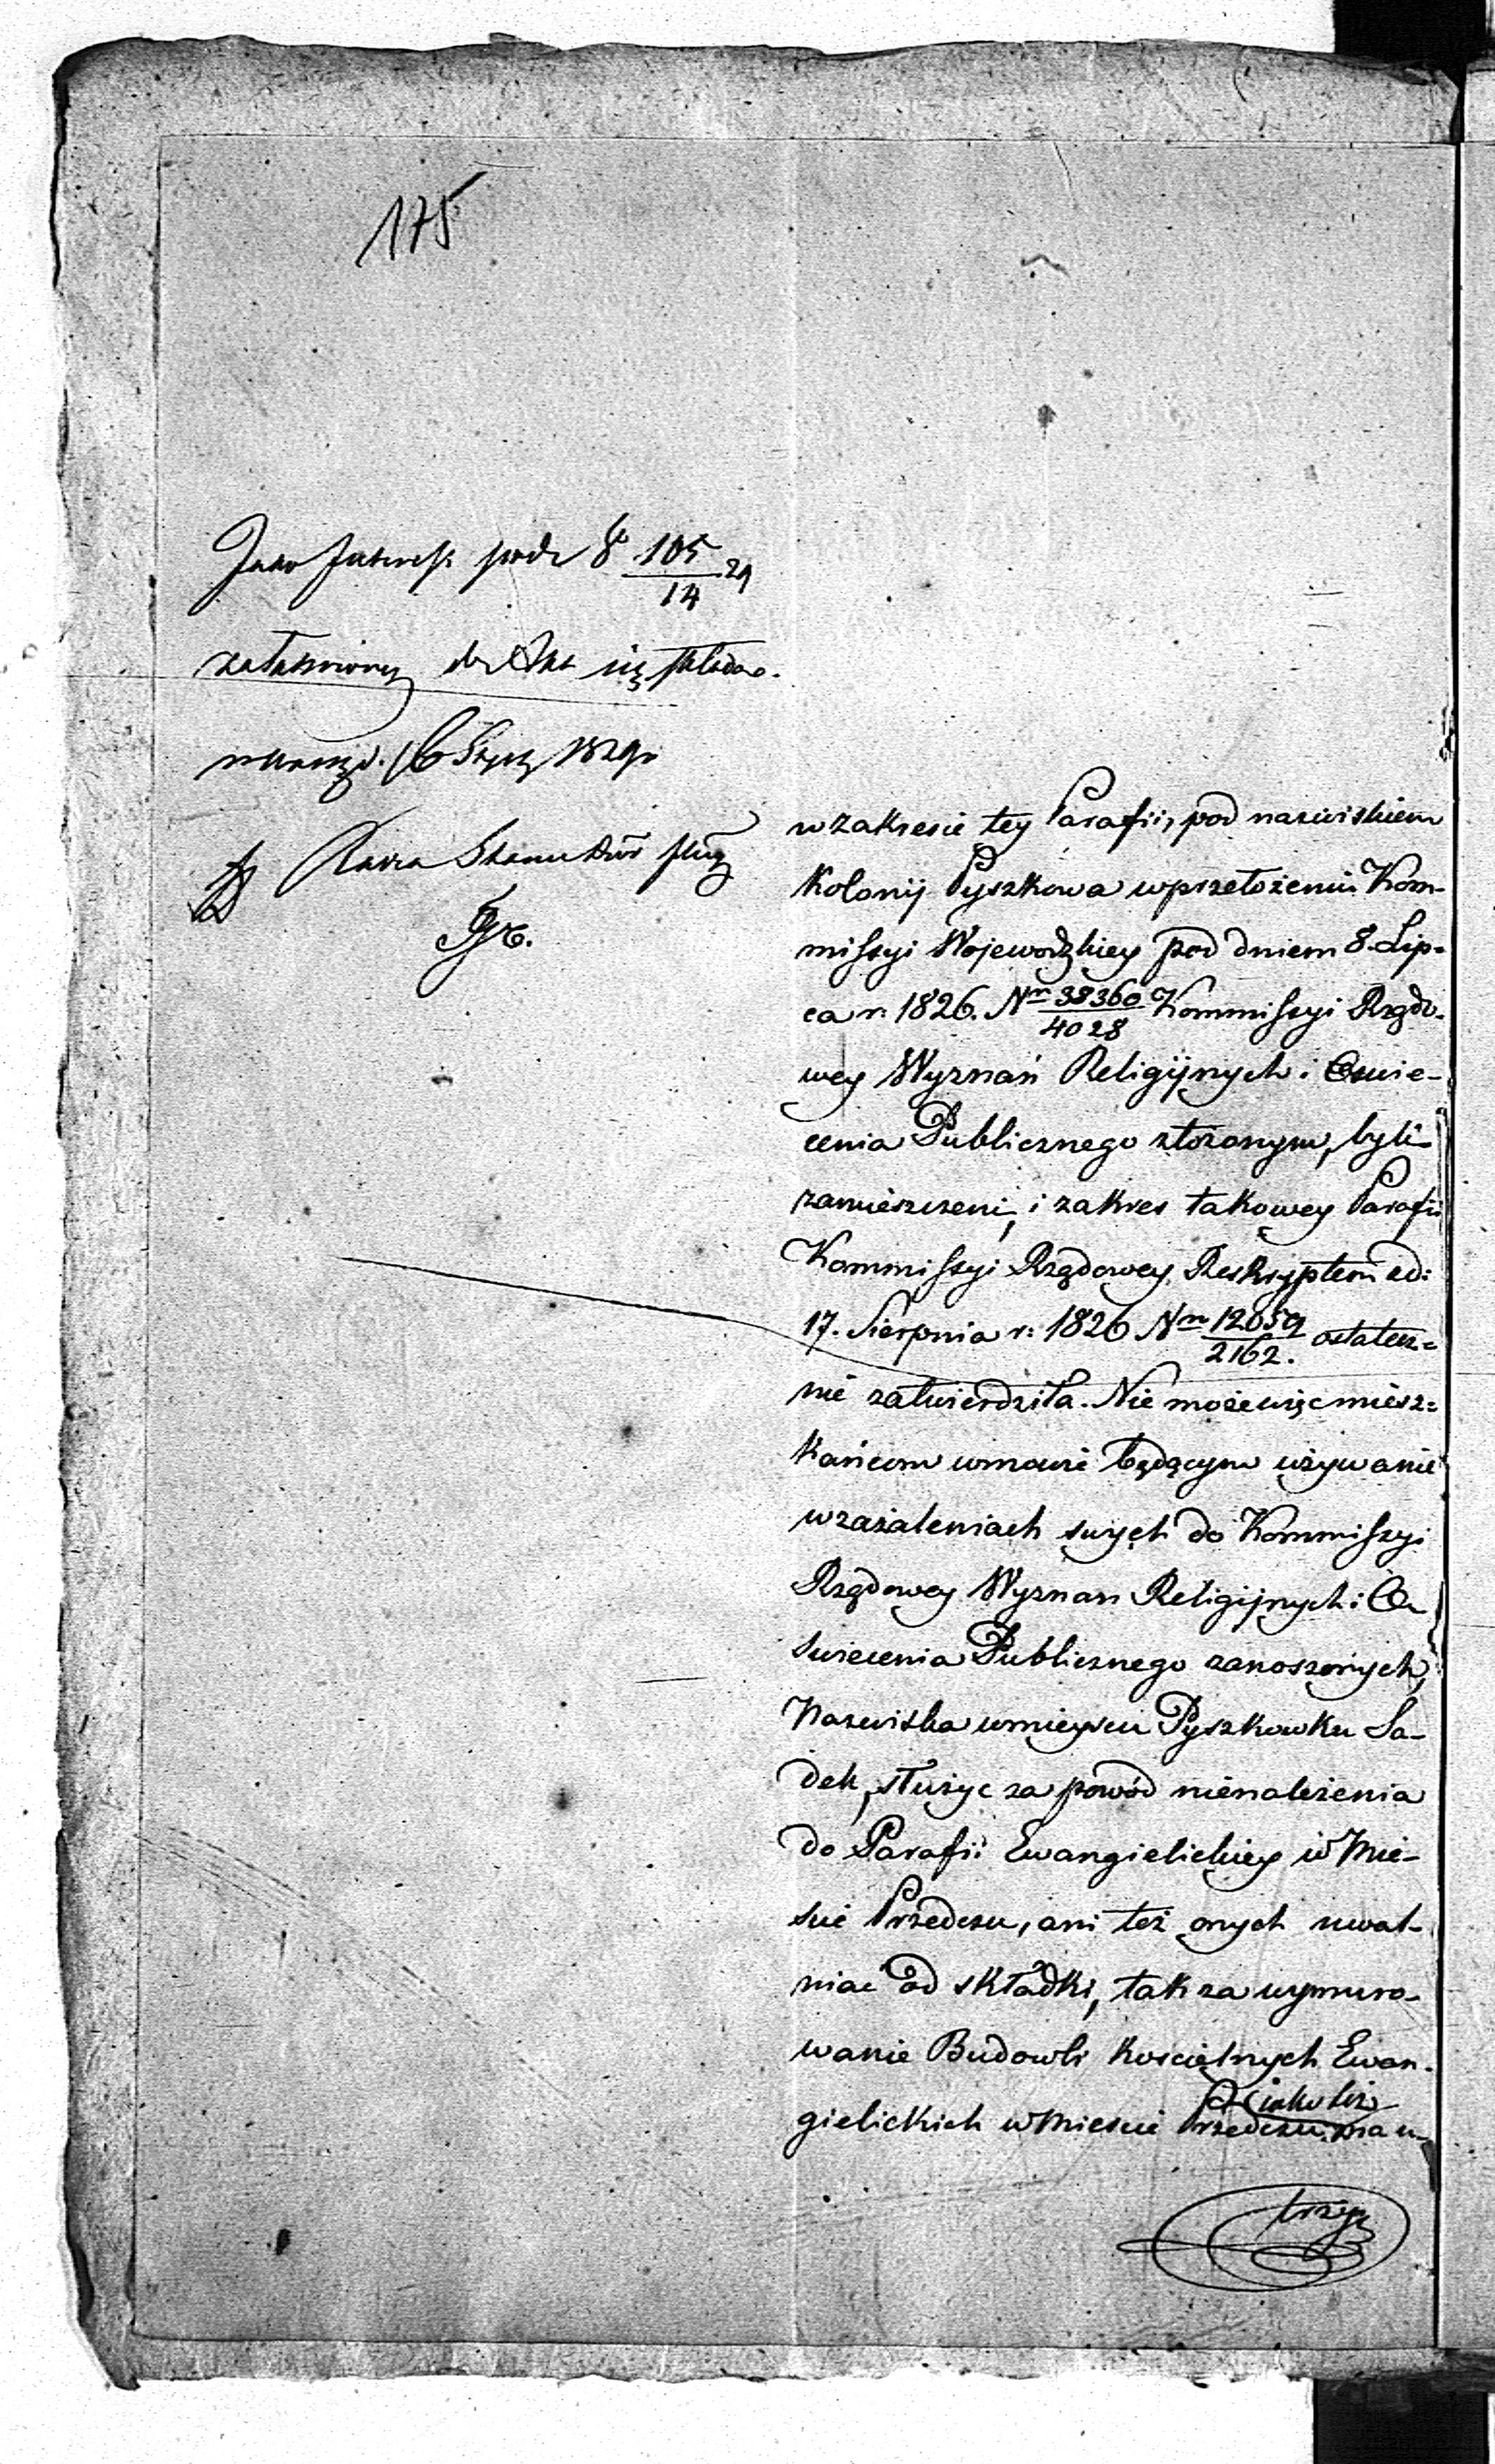 175
Jako 8 105/14 29
załatwiony do Akt się składa.
16 Stycz 1829 r
w zakresie tey Parafii, pod nazwiskiem
Kolonij Pyszkowa w przełożeniu Kom-
missyi Wojewodzkiey pod dniem 8. Lip-
ca r. 1826. Nrn 38360/4028 Kommissyi Rządo-
wey Wyznań Religijnych i Oswie-
cenia Publicznego złożonym, byli
zamieszczeni, i zakres takowey Parafii
Kommissyi Rządowey Reskryptem z d:
17. Sierpnia r: 1826 Nrn 12059/2162. ostatecz=
nie zatwierdziła. Nie może więc miesz=
kańcom w mowie będącym używanie
w zażaleniach swych do Kommissyi
Rządowey Wyznan Religijnych i O-
swiecenia Publicznego zanoszonych,
Nazwiska w mieyscu Pyszkowku Sa-
dek, służyc za powód nienależenia
do Parafii Ewangielickiey w Mie-
scie Przedczu, ani też onych uwal-
niać od składki, tak za wymuro-
wanie Budowli Koscielnych Ewan-
gielickich w Miescie Przedczu jako też na u-
trzy